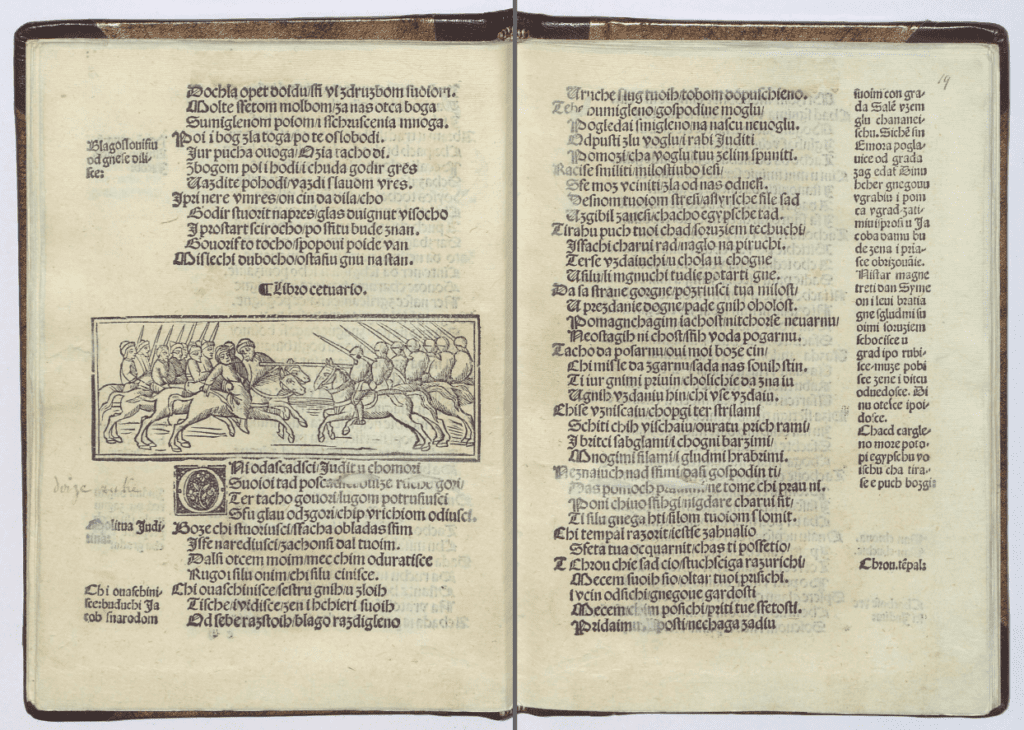 Dochla opet doidu/ſſi vſ zdruzbom ſuoiom.
Molte ſſetom molbom/za nas otca boga
Sumiglenom potom/i ſſchruſcenia mnoga.
Poi i bog zla toga/po te oſlobodi.
Iur pucha ouoga/Ozia tacho di.
Zbogom poi i hodi/i chuda godir grés
Uazdite pohodi/vazdi ſlauom vrés.
I pri nere vmres/on cin da dila/cho
Godir ſtuorit napres/glas duignut viſocho
I proſtart ſcirocho/po ſſitu bude znan.
Gouoriſ to tocho/ſpoponi poide van
Miſlechi dubocho/oſtaſiu gnu na ſtan.
Blagoſſouiſſiu
od gneſe dili-
ſce:
¶Libro cetuarto.
ONi odaſcadſci/Judit u chomori
Suoioi tad poſcadſci/ ruche gori/
Ter tacho gouori/ugom potruſiuſci
Sſu glau odzgori/chip vrichiom odiuſci.
Boze chi ſtuoriuſci/ſſacha obladas ſſim
Iſſe narediuſci/zachonſſi dal tuoim.
Dalſi otcem moim/mec chim oduratiſce
Rugoi ſilu onim/chi ſilu ciniſce.
Chi ouaſchiniſce/ſeſtru gnih/u zloih
Tiſche/ividiſce/zen i hchieri ſuoih
Od ſebe razſtoih/blago razdigleno
Molitua Judi-
Chi ouaſchini-
ſce:buduchi Ja
cob ſnarodom
19
Uruche ſlug tuoih/tobom dopuſchieno.
Tebe oumigleno/goſpodine moglu/
Pogledai ſmigleno/na naſcu neuoglu.
Odpuſti zlu voglu/i rabi Juditi
Pomozi/cha voglu tuu zelim ſpuniti.
Raciſe ſmiliti/miloſtiubo ieſi/
Sſe moz vciniti/zla od nas odneſi.
Deſnom tuoiom ſtreſi/aſyrſche ſile ſad
Uzgibil zaneſi/chacho egypſche tad.
Tirahu puch tuoi chad/ſoruziem techuchi/
Iſſachi charui rad/naglo na piruchi.
Terſe vzdaiuchi/u chola u chogne
Uſilu/i mgnuchi tudie potarti gne.
Da ſa ſtrane gorgne/pozriuſci tua miloſt/
U prezdanie dogne/pade gnih oholoſt.
Pomagnchagim iachoſt/nitchorſe neuarnu/
Neoſtagih ni choſt/ſſih voda pogarnu.
Tacho da poſarnu/oui moi boze cin/
Chi miſle da zgarnu/ſada nas ſouih ſtin.
Ti iur gnimi priuin/cholichie da zna iu
Ugnih vzdaniu hin/chi vſe vzdaiu.
Chiſe vzniſcaiu/chopgi ter ſtrilami
Schiti chih viſchaiu/ouratu prich rami/
I britci ſabglami/i chogni barzimi/
Mnogimi ſilami/i gludmi hrabrimi.
Neznaiuch nad ſſimi/daſi goſpodin ti/
Das pomoch tome chi prau ni.
Poni chiuo ſſihgi/nigdare charui ſit/
Ti ſilu gnega hti/ſilom tuoiom ſlomit.
Chi tempai razorit/ieſtiſe zahualio
Sſeta tua ocquarnit/chas ti poſſetio/
T Chrou chie ſad cio/ſtuchſciga razurichi/
Mecem ſuoih ſio/oltar tuoi pritiſchi.
i vcin odſichi/gnegoue gardoſti
Mecem poſichi/priti tue ſſetoſti.
Pridaim poſti/nechaga zadiu
ſuoim con gra-
da Salé vzem
glu chananei-
ſchu.Sichē ſin
Emora pogla-
uice od grada
zug edat Dinu
hcher gnegouu
vgrabiu i pom
ca vgrad.zati-
miu/i proſi u Ja
coba damu bu
de zena i pria-
ſce obrizouāie.
Niſtar magne
treti dan Syme
on i leui bratia
gne ſgludmi ſu
oimi ſoruziem
ſchociſce u
grad ipo rubi-
ſce.muze pobi
ſce zene i diecu
oduedoſce. Di
nu otelce ipoi-
doſce.
Chaed cargle-
no more poto-
pi egypſchu vo
iſchu cha tira-
ſe e puch bozgi
Chrou.tēpal: